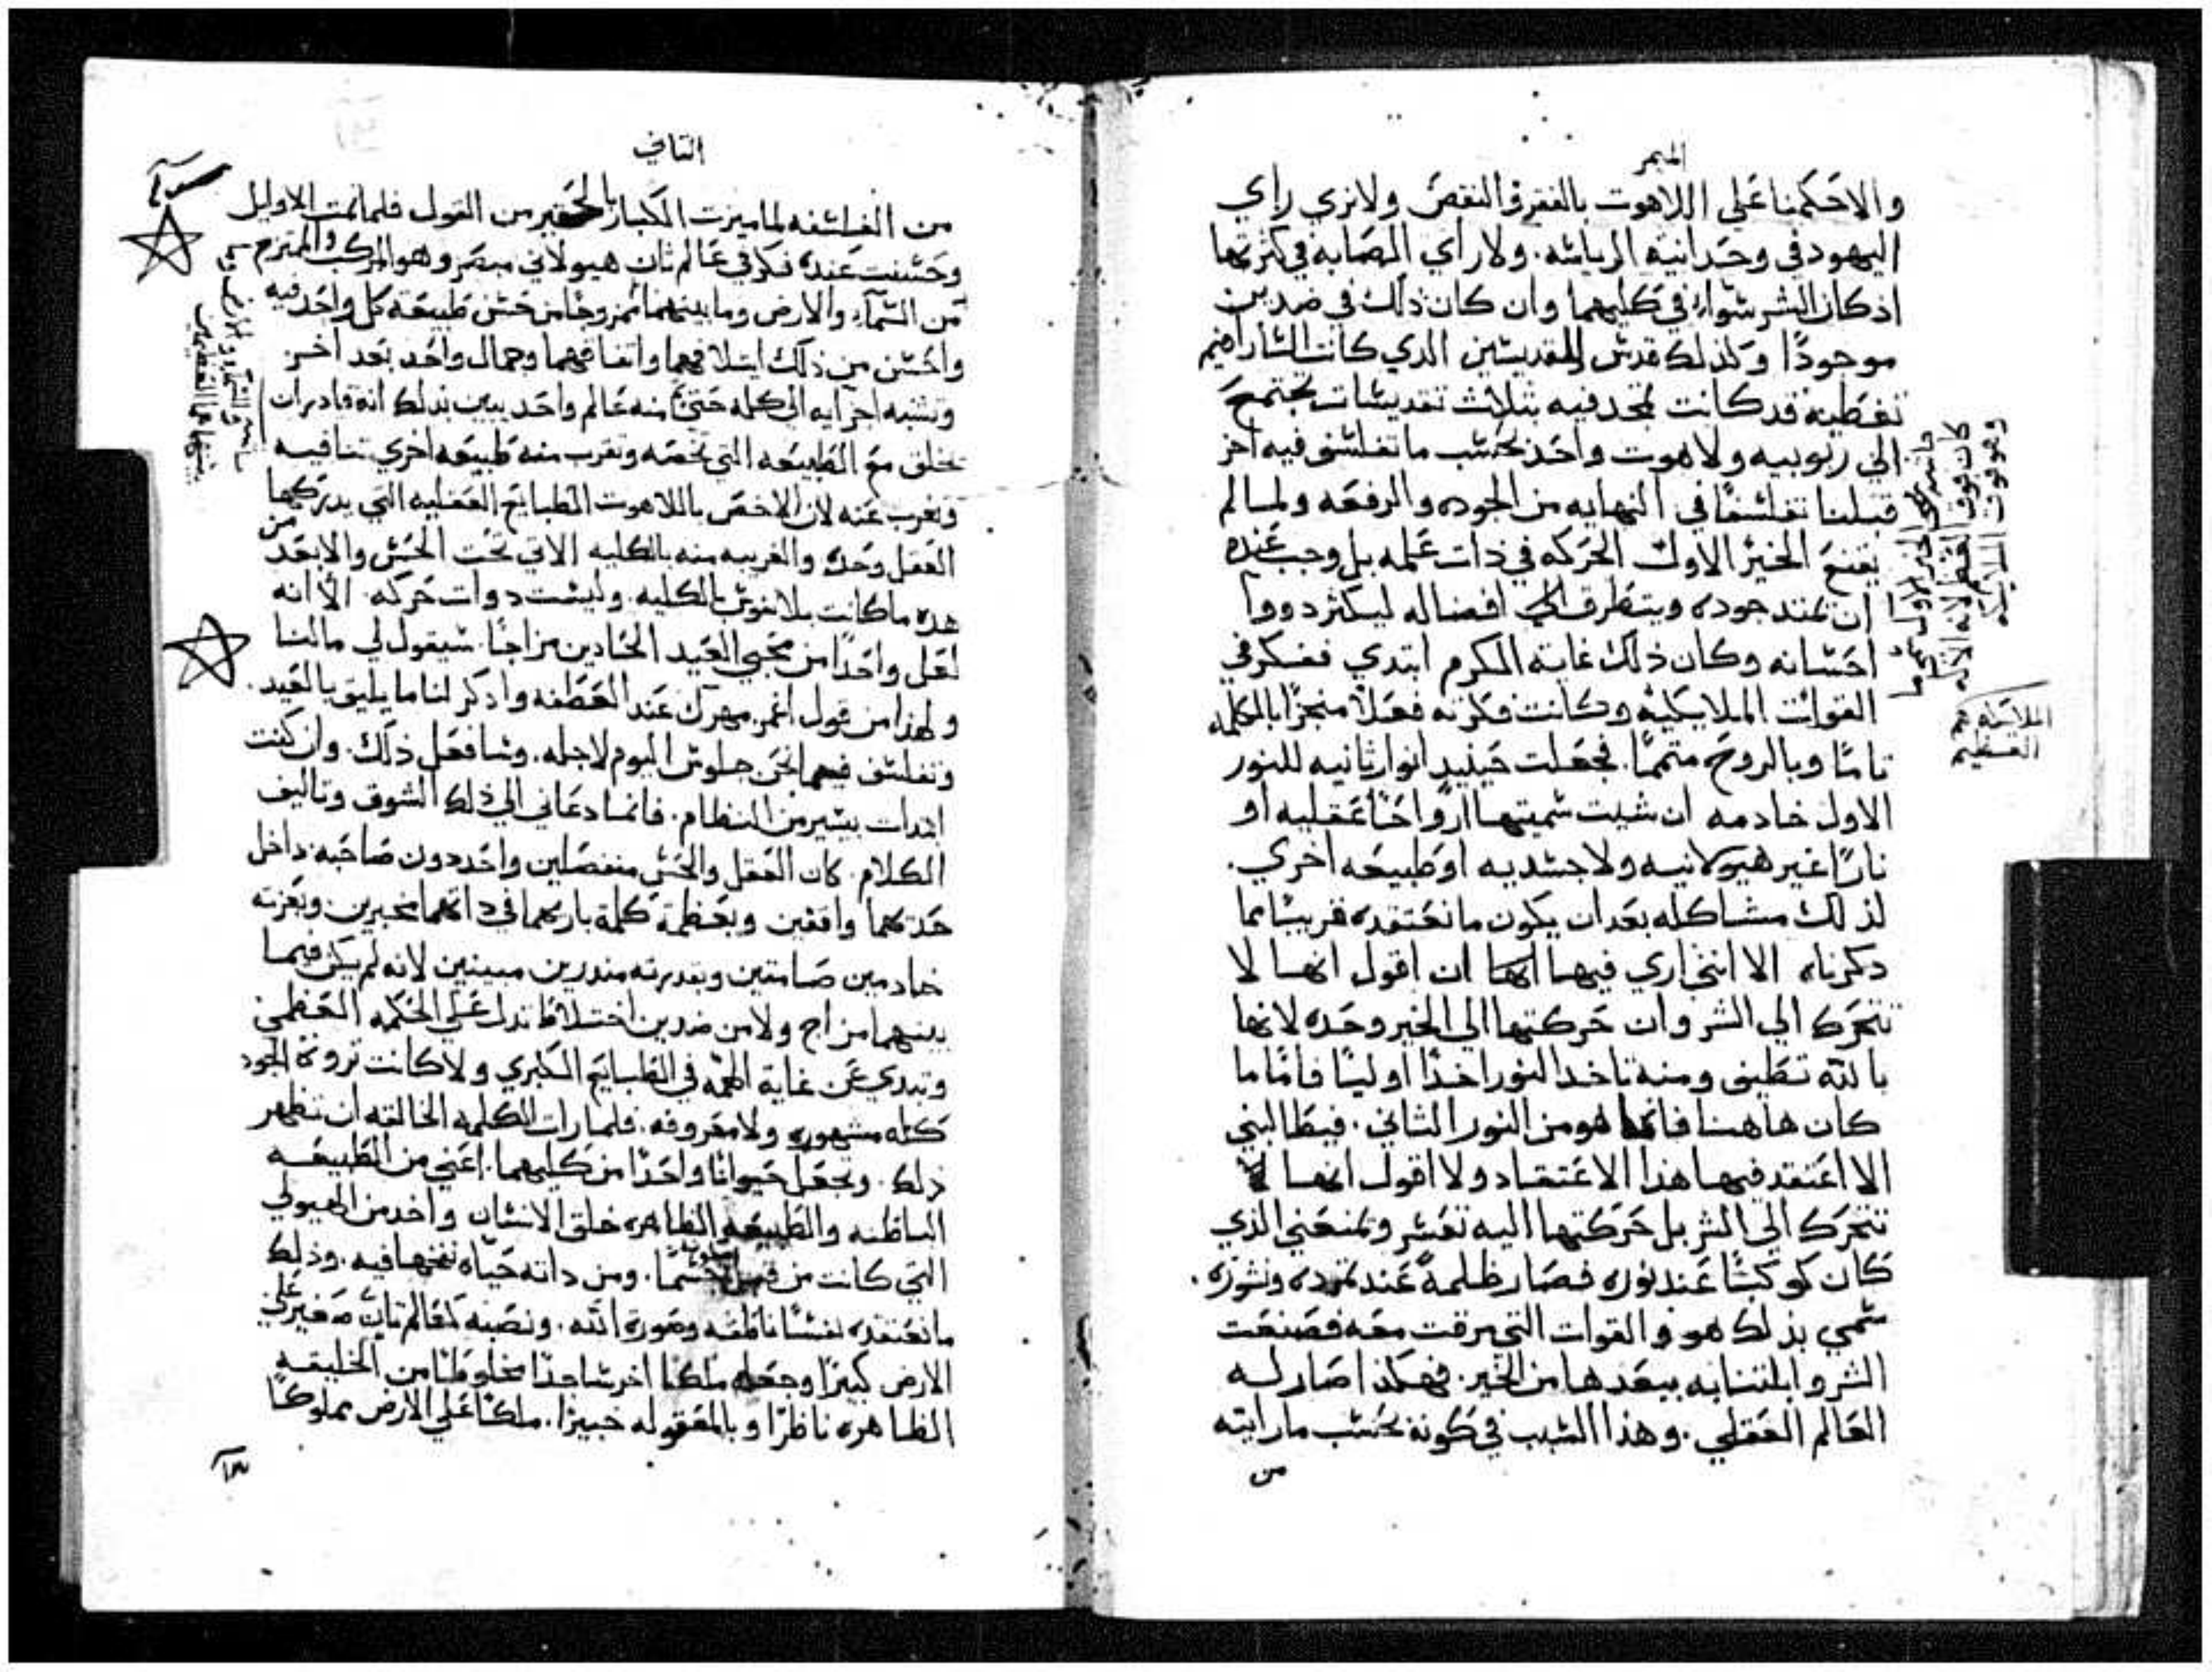 الميمر
والا حكمنا على اللاهوت بالفقر والنقص ولا نري راي
اليهود في وحدانية الرياسه. ولا راي الصابه في كثرتها
اذ كان الشر سواء في كليهما وان كان ذلك في ضدين
موجودًا وكذلك قدس المقديسين الدي كانت السارافيم
تغطيه قد كانت تمجد فيه بتلات تقديسات تجتمع
الي ربوبيه ولاهوت واحد بحسب ما تفلسف فيه اخر
قبلنا تفلسفًا في النهايه من الجوده والرفعه ولما لم
يقنع الخير الاول الحركه في ذات علمه بل وجب عنده
ان تمتد جوده ويتطرق الي افضاله ليكثر دووا
احسانه وكان ذلك غاية المكرم ابتدي ففكر في
القوات الملايكيه وكانت فكرته فعلا منجزًا بالكلمه
تامًا وبالروح متممًا. فجعلت حينيدٍ انوار ثانيه للنور
الاول خادمه ان شيت سميتها ارواحًا عقليه او
نارًا غير هيولانيه ولا جسديه او طبيعه اخري.
لذلك مشاكله بعد ان يكون ما نعتقده قريبًا مما
دكرناه الا انتخاري فيها انها ان اقول انها لا
تتحرك الي الشر وان حركتها الي الخير وحده لانها
بالله تطيف ومنه تاخد النور اخدًا اوليًا فاما ما
كان هاهنا فانما هو من النور الثاني. فيطالبني
الا اعتقد فيها هذا الاعتقاد ولا اقول انها لا
تتحرك الي الشر بل حركتها اليه تعسر وتمنعني الذي
كان كوكبًا عند نوره فصار ظلمةً عند تمرده ونشوزه.
سمي بذلك هو والقوات التي مرقت معه فصنعت
الشر وابلتنابه ببعدها من الخير. فهكذا صار له
العالم العقلي. وهذا السبب في كونه بحسب ما رايته
من
كان فوق العقل لانه الاله
وهو فوق الملايكه
الملايكه هم
التاني
من الفلسفه لما ميزت الكبار بالحقير من القول فلما تمت الاوايل
وحسنت عنده فكر في عالم ثان هيولاني مبصر وهو المركب والممتزج
من السماء والارض وما بينهما ممزوجًا من حسن طبيعة كل واحد فيه
واحسن من ذلك ايتلافهما واتفاقهما وجمال واحد بعد اخر
وتشبه اجزايه الي كله حتي منه عالم واحد يبين بذلك انه قادر ان
يخلق مع الطبيعه التي تخصه وتقرب منه طبيعه اخري تنافيه
وتغرب عنه لان الاخص باللاهوت الطبايع العقليه التي يدركها
العقل وحده والغريبه منه بالكليه الاتي تحت الحس والابعد من
هده ما كانت بلا نفوس بالكليه. وليست دوات حركه. الا انه
لعل واحدًا من محبي العيد الحادين مزاجًا. سيقول لي ما لنا
ولهذا من قول انخر مهرك عند العطفه وادكر لنا ما يليق بالعيد.
وتفلسف فيما نحن جلوس اليوم لاجله. وسافعل ذلك. وان كنت
ابتدات بيسير من النظام. فانما دعاني الي ذلك الشوق وتاليف
الكلام. كان العقل والحس منفصلين واحد دون صاحبه داخل
حدهما واقفين وبعظمة كلمة باريهما في داتهما مخبرين وبعزته
خادمين صامتين وبقدرته مندرين مبينين لانه لم يكن فيما
بينهما مزاج ولا من ضدين اختلاطا تدل علي الحكمه العظمي
وتبدي عن غاية الحكمه في الطبايع الكبري ولا كانت ثروة الجود
كله مشهوره ولا معروفه. فلما رات الكلمه الخالقه ان تظهر
ذلك. وتجعل حيوانًا واحدًا من كليهما. اعني من الطبيعه
الباطنه والطبيعه الظاهره خلق الانسان واخد من الهيولي
التي كانت من قبل جسمًا. ومن داته حياه نفخها فيه. وذلك
ما نعتقده نفسًا ناطقه وصورة الله. ونصبه كعالم ثان صغير علي
الارض كبيرًا وجعله ملكًا اخر ساجدًا مخلوطًا من الخليقه
الظاهره ناظرًا وبالمعقوله خبيرًا. ملكًا علي الارض مملوكًا